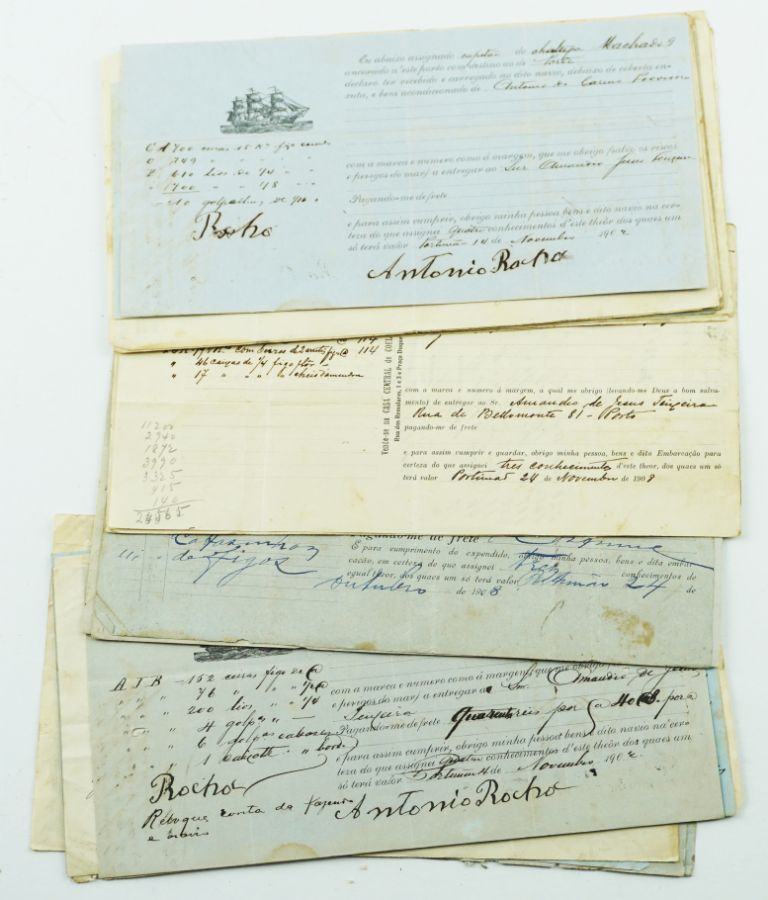 Eu abaixo assignado capitão do chalupa Machado 9
ancorado n'este porto com destino ao de Porto
declaro ter recebido e carregado no dito navio, debaixo de coberta en-
xuta, e bem acondicionado de Antonio do Carmo Provisorio
700 ceiras 15 K.os figo
749 " " " "
610 lios de 1/4 " "
1700 " " 1/8 " "
210 golpelhas, de
Rocha
com a marca e numero como á margem, que me obrigo (salvo os riscos
e perigos do mar) a entregar ao Snr Amandio Jesus
Pagando-me de frete
e para assim cumprir, obrigo minha pessoa bens e dito navio na cer-
teza do que assignei quatro conhecimentos d'este theôr dos quaes um
só terá valor Portimão 14 de Novembro 190
Antonio Rocha
114
" 46 caixas de 1/4 figo flôr –
" 17 " " "
114
Vende-se na CASA CENTRAL de
Rua dos Remolares, 1 e 3 e Praça Duque
com a marca e numero á margem, a qual me obrigo (levando-me Deus a bom salva-
mento) de entregar ao Sr. Amandio de Jesus Teixeira
Rua de Bellomonte 81 – Porto
pagando-me de frete
e para assim cumprir e guardar, obrigo minha pessoa, bens e dita Embarcação para
certeza do que assignei tres conhecimentos d'este theor, dos quaes um só
terá valor Portimão 24 de Novembro de 1908
11200
2940
1872
3990
3325
915
140
24565
Pagando-me de frete
de figos
E para cumprimento do expendido, obrigo minha pessoa, bens e dita embar-
cação, em certeza do que assignei Trez conhecimentos de
egual theor, dos quaes um só terá valor. Portimão 24 de
Outubro de 1908
A J R – 152 ceiras figo de @
" " " 76 " " " 1/2@
" " " 200 lios " " 1/4
" " 4 golp.as " –
" " 6 golp.as
" " 1
com a marca e numero como á margem, que me obrigo (salvo os riscos
e perigos do mar) a entregar ao Snr. Amandio de Jesus
Teixeira
Pagando-me de frete Quarenta reis por @ 40 por @
e para assim cumprir, obrigo minha pessoa bens e dito navio na cer-
teza do que assignei quatro conhecimentos d'este theôr dos quaes um
só terá valor Portimão de Novembro 190
Rocha
Antonio Rocha
Reboque conta da fazenda
e navio